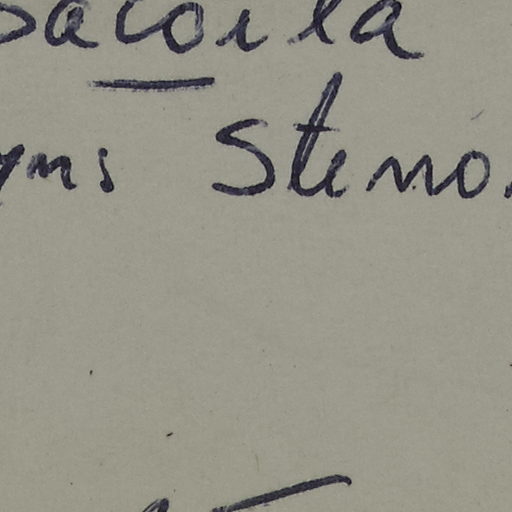 Sacoila
yms Steno